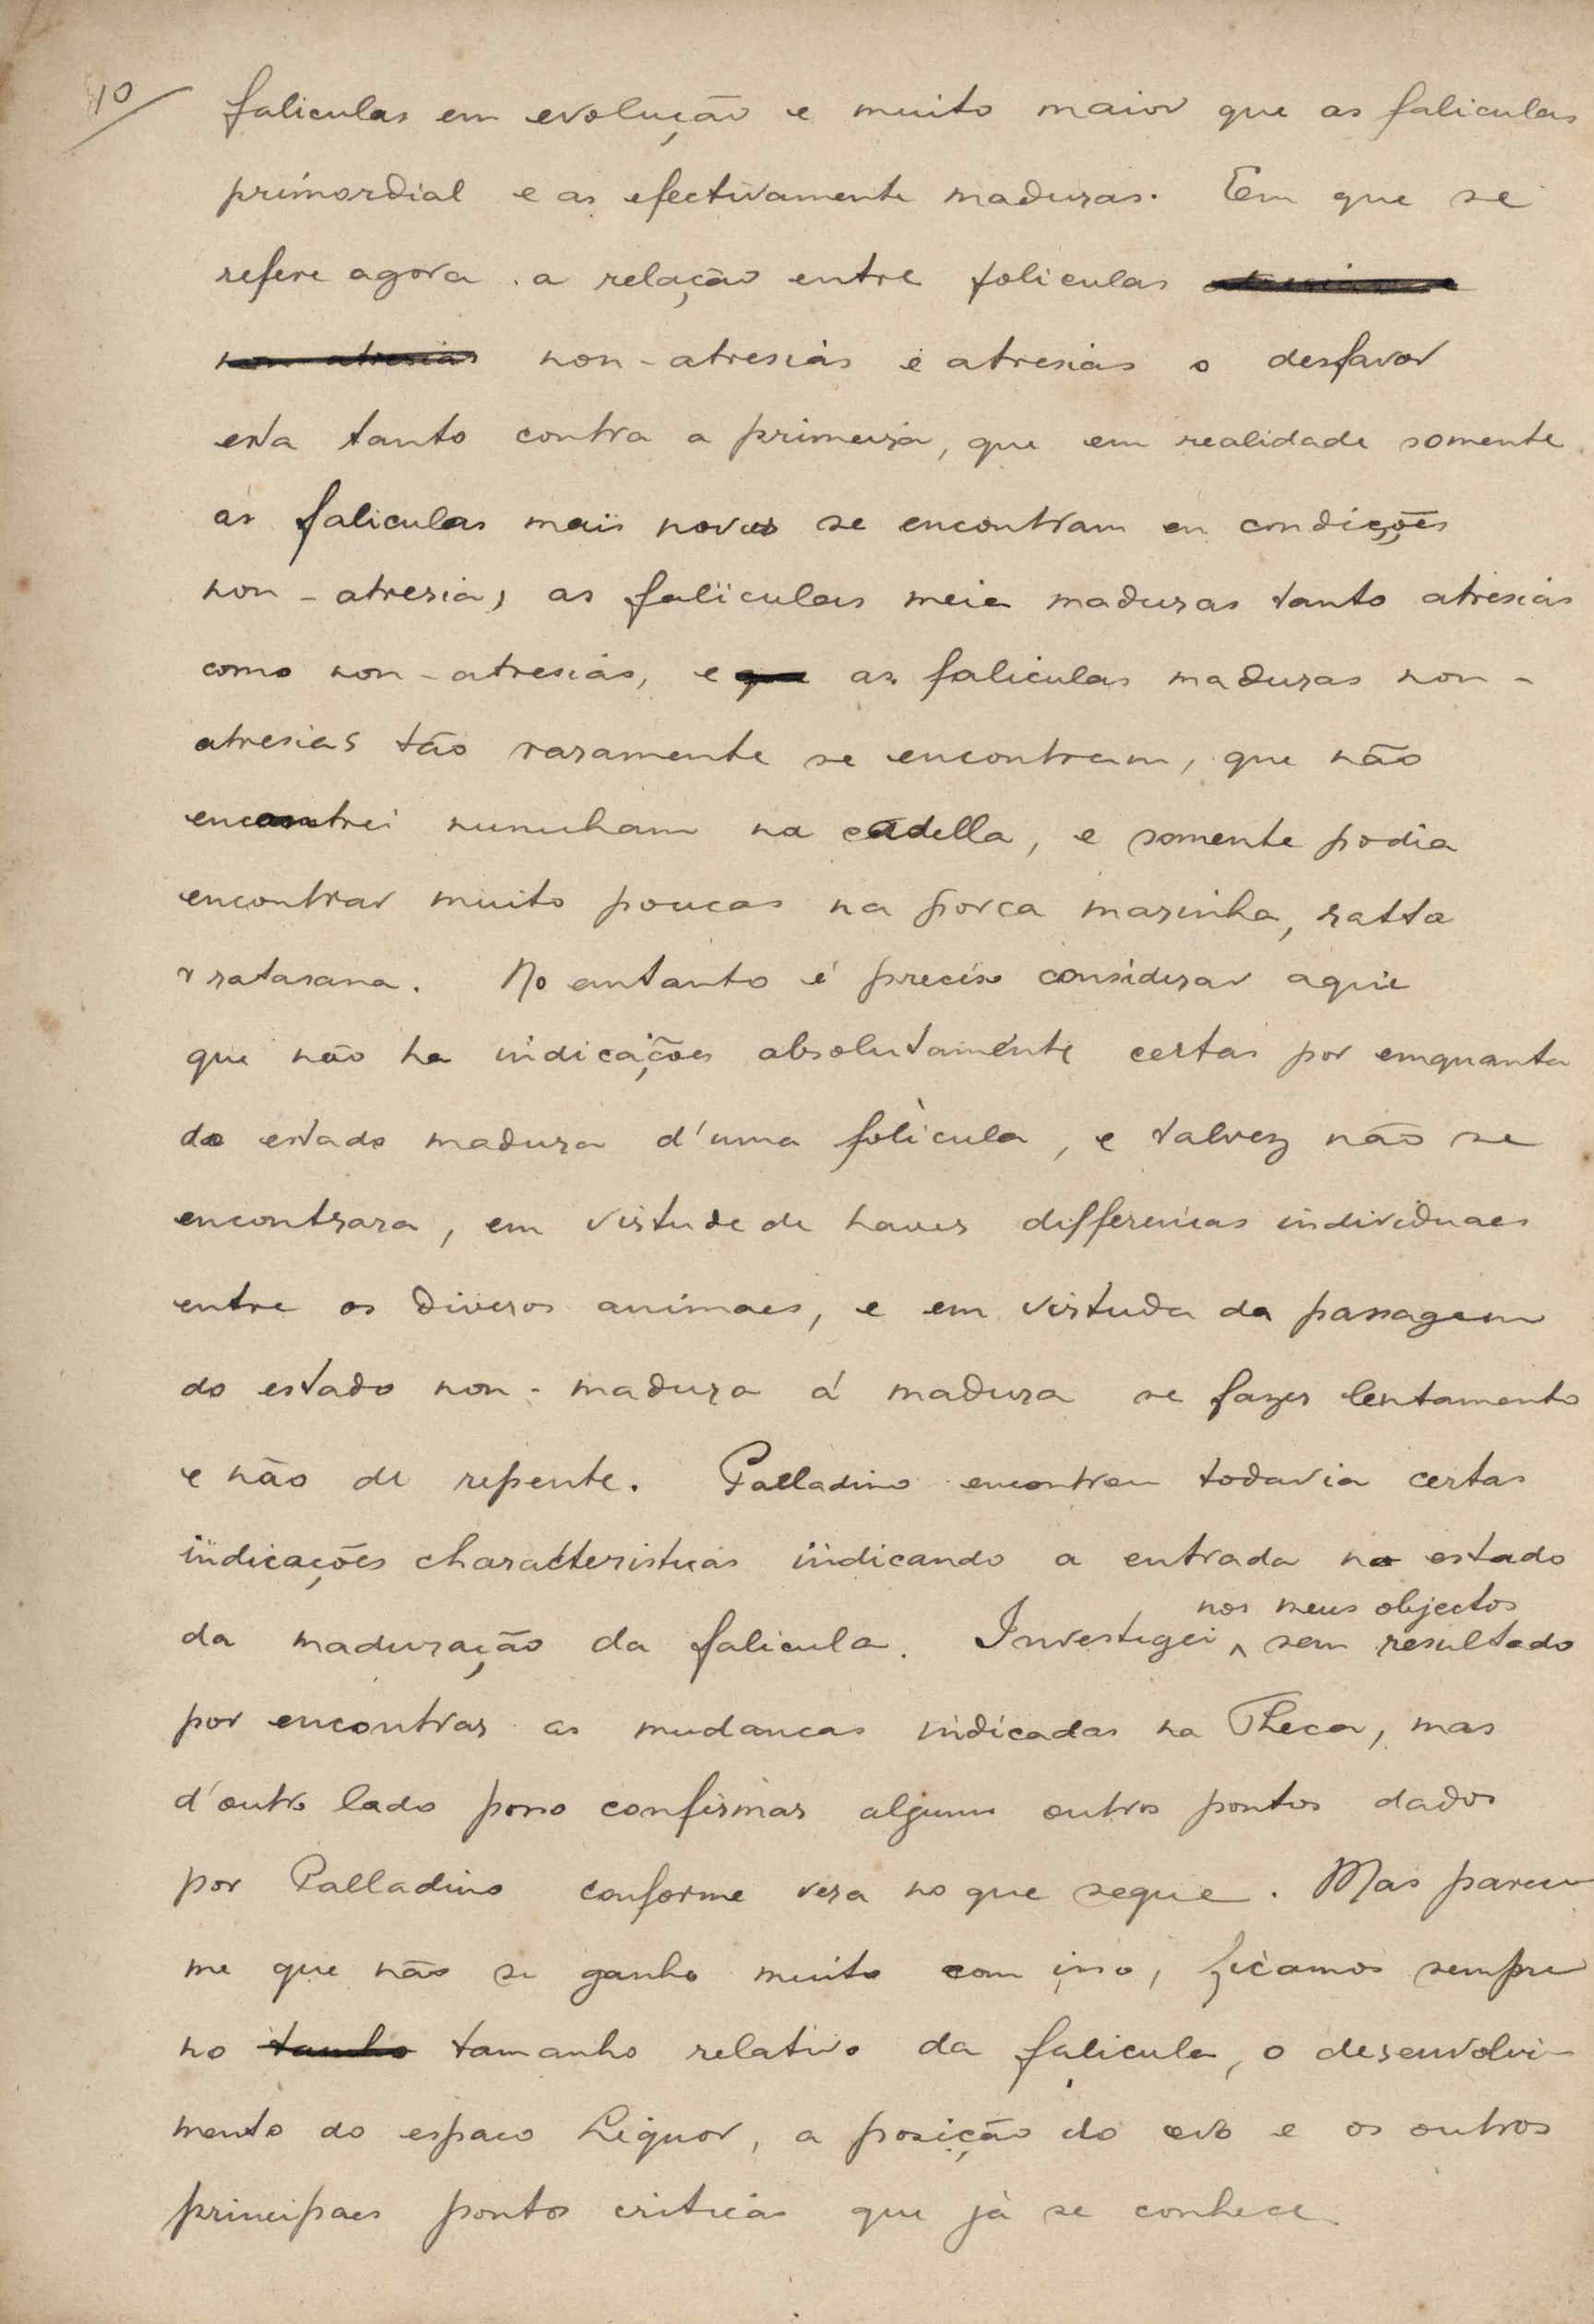 10/
faliculas em evolução e muito maior que as faliculas
primordial e as efectivamente maduras. Em que se
refere agora a relação entre foliculas
non atresias non-atresias e atresias o desfavor
esta tanto contra a primeira, que em realidade somente
as faliculas mais novas se encontram en condições
non-atresia, as faliculas meia maduras tanto atresias
como non-atresias, e que as faliculas maduras non-
atresias tão raramente se encontram, que não
encontrei nunuham na cadella, e somente podia
encontrar muito poucas na porca marinha, ratta
e ratasana. No emtanto é preciso considerar aquie
que não ha indicações absolutamente certas por emquanta
do estado madura d'uma folicula, e talvez não se
encontrara, em virtude de haver differencias individuaes
entre os diveros animaes, e em virtuda da passagem
do estado non-madura á madura se fazer lentamento
e não de repente. Palladino encontrou todavia certas
indicações characteristicas indicando a entrada no estado
da maduração da falicula. Investigei ^ nos meus objectos sem resultado
por encontrar as mudancas indicadas na Theca, mas
d'outro lado posso confirmar alguns outros pontos dados
por Palladino conforme vera no que segue. Mas parece
me que não se ganho muito com isso, ficamos sempre
no tamho tamanho relativo da falicula, o desenvolvi-
mento do espaco Liquor, a posição do ovo e os outros
principaes pontos criticas que já se conhece